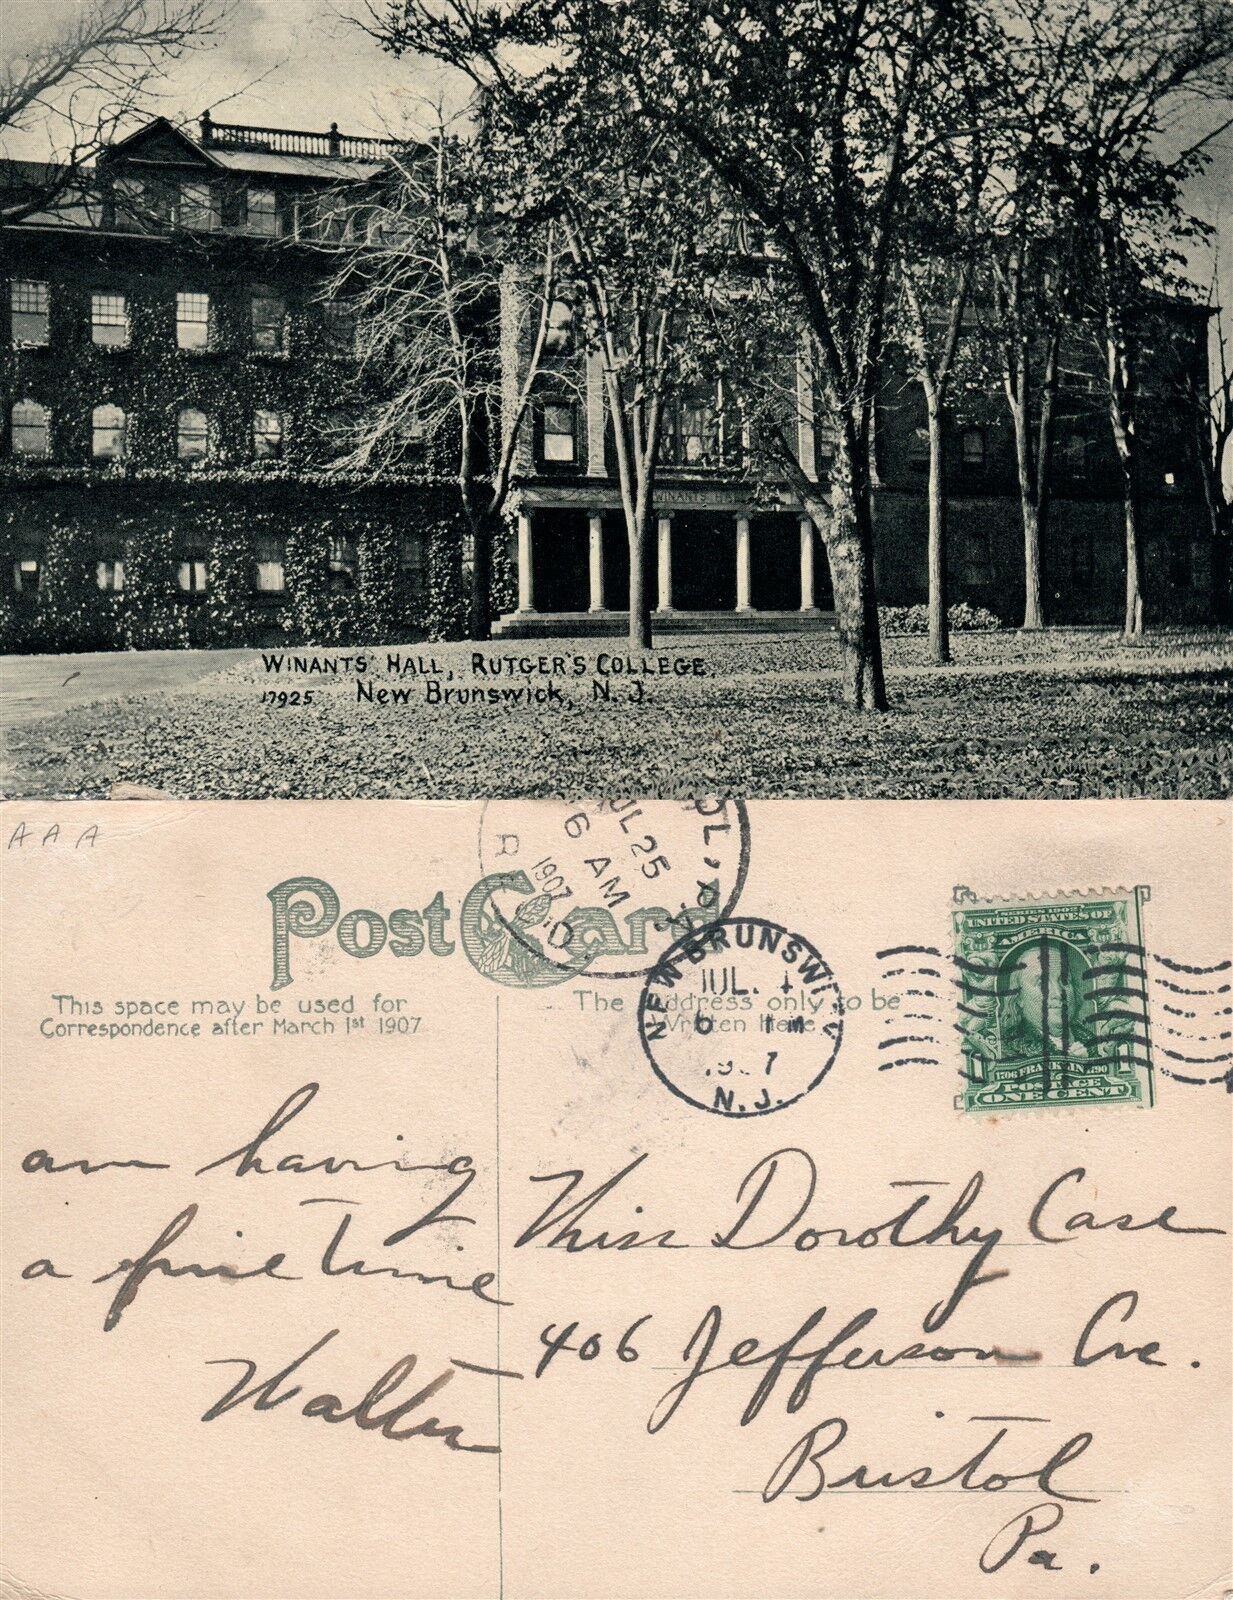 WINANTS HALL
WINANTS HALL, RUTGER'S COLLEGE,
17925 New Brunswick, N. J.
A A A
OL, PA
JUL 25
6 AM
1907
REC'D.
Post Card
This space may be used for
Correspondence after March 1st 1907
The Address only to be
Written Here
NEW BRUNSWICK
JUL.
6
1907
N. J.
SERIES 1902
UNITED STATES OF
AMERICA
1706 FRANKLIN 1790
1 POSTAGE 1
ONE CENT
am having
a fine time
Walter
Miss Dorothy Case
406 Jefferson Ave.
Bristol
Pa.